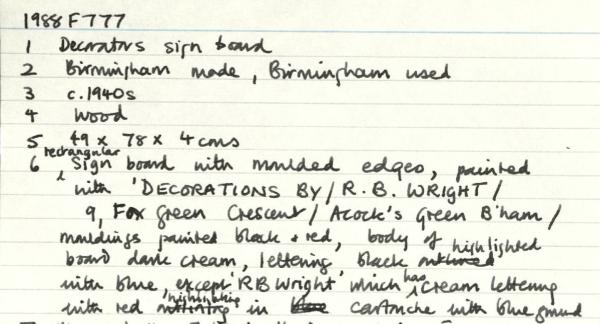 1988 F777
1 Decorators sign board
2 Birmingham made, Birmingham used
3 c.1940s
4 Wood
5 49 x 78 x 4 cms
6 rectangular Sign board with moulded edges, painted
with 'DECORATIONS BY / R. B. WRIGHT /
9, Fox Green Crescent / Acock's Green B'ham /
mouldings painted black & red, body of
board dark cream, lettering black outlined highlighted
with blue, except 'RB Wright' which has cream lettering
with red outlining highlighting in blue cartouche with blue ground